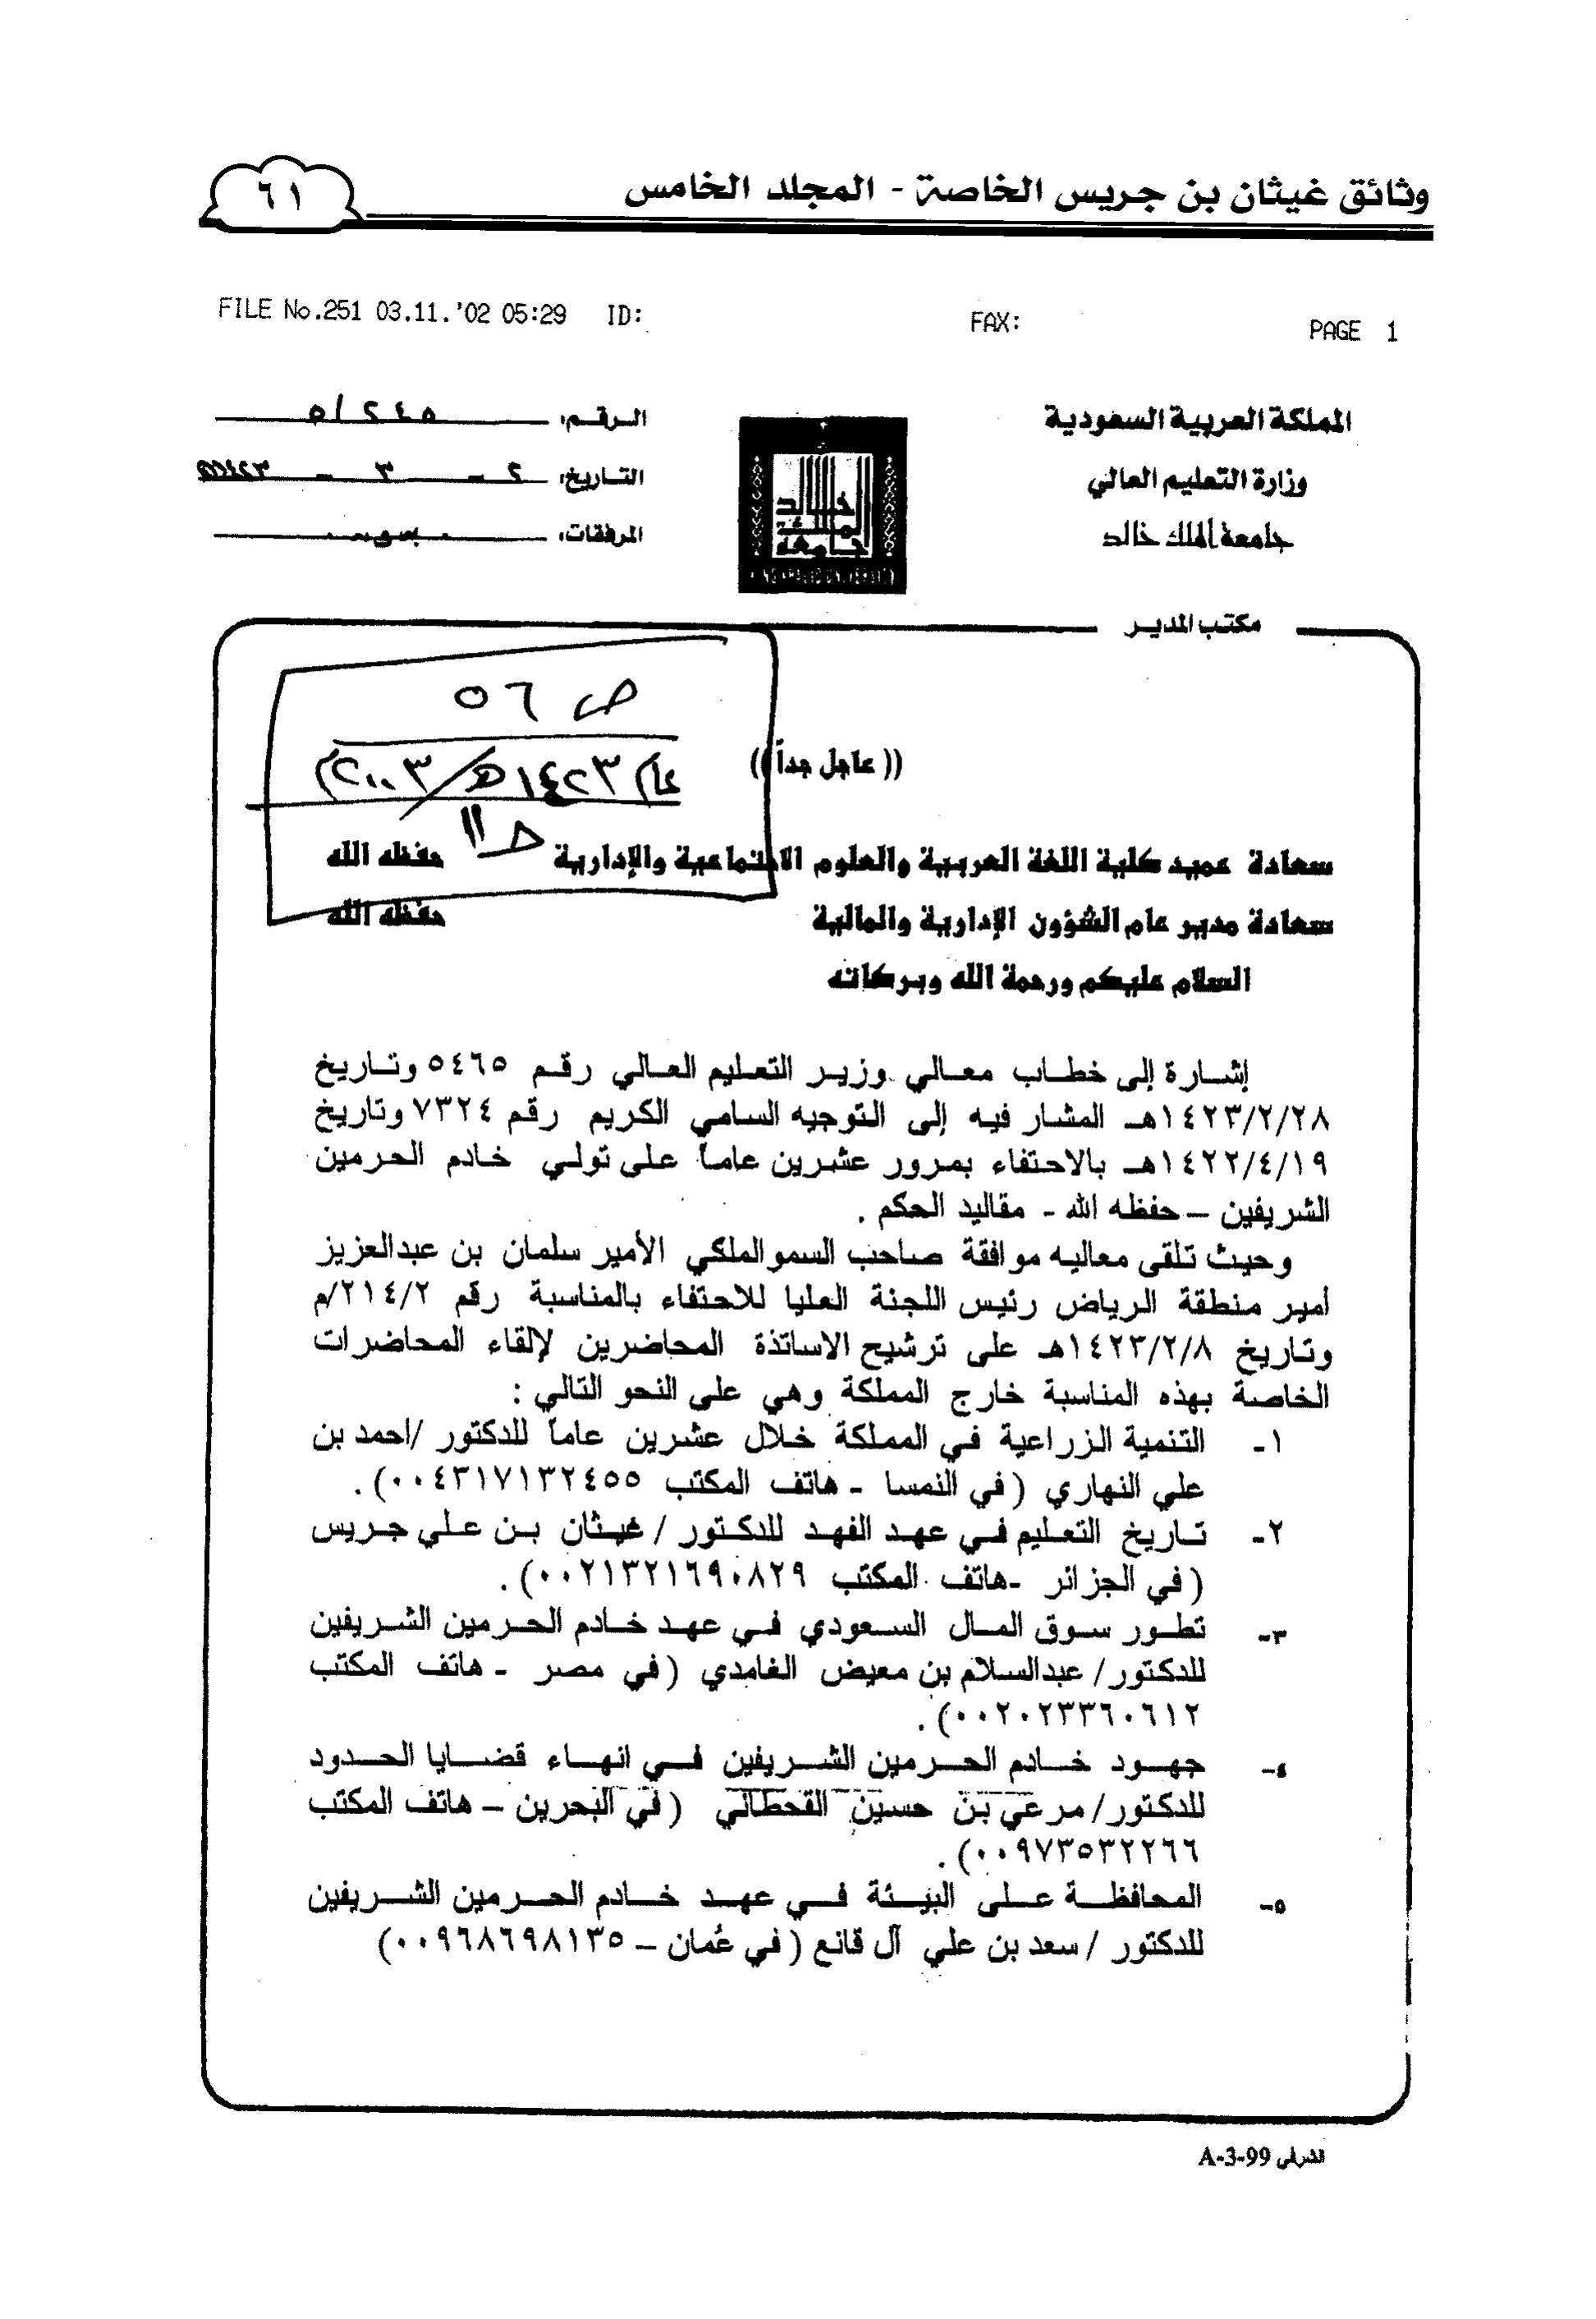 وثائق غيثان بن جريس الخاصة - المجلد الخامس
٦١
FILE No.251 03.11.'02 05:29 ID: FAX: PAGE 1
المملكة العربية السعودية
وزارة التعليم العالي
جامعة الملك خالد
مكتب المدير
جامعة الملك خالد
KING KHALID UNIVERSITY
الرقم: ٥/٢٤٥
التاريخ: ٢ - ٣ -
المرفقات:
ص ٥٦
عام ١٤٢٣هـ/٢٠٠٣م
(( عاجل جداً ))
سعادة عميد كلية اللغة العربية والعلوم الاجتماعية والإدارية حفظه الله
سعادة مدير عام الشؤون الإدارية والمالية حفظه الله
السلام عليكم ورحمة الله وبركاته
إشارة إلى خطاب معالي وزير التعليم العالي رقم ٥٤٦٥ وتاريخ
١٤٢٣/٢/٢٨هـ المشار فيه إلى التوجيه السامي الكريم رقم ٧٣٢٤ وتاريخ
١٤٢٢/٤/١٩هـ بالاحتفاء بمرور عشرين عاماً على تولي خادم الحرمين
الشريفين – حفظه الله - مقاليد الحكم .
وحيث تلقى معاليه موافقة صاحب السمو الملكي الأمير سلمان بن عبدالعزيز
أمير منطقة الرياض رئيس اللجنة العليا للاحتفاء بالمناسبة رقم ٢١٤/٢/م
وتاريخ ١٤٢٣/٢/٨هـ على ترشيح الاساتذة المحاضرين لإلقاء المحاضرات
الخاصة بهذه المناسبة خارج المملكة وهي على النحو التالي :
١- التنمية الزراعية في المملكة خلال عشرين عاماً للدكتور /احمد بن
علي النهاري (في النمسا - هاتف المكتب ٠٠٤٣١٧١٣٢٤٥٥).
٢- تاريخ التعليم في عهد الفهد للدكتور / غيثان بن علي جريس
(في الجزائر -هاتف المكتب ٠٠٢١٣٢١٦٩٠٨٢٩).
٣- تطور سوق المال السعودي في عهد خادم الحرمين الشريفين
للدكتور/ عبدالسلام بن معيض الغامدي (في مصر - هاتف المكتب
٠٠٢٠٢٣٣٦٠٦١٢).
٤- جهود خادم الحرمين الشريفين في انهاء قضايا الحدود
للدكتور/ مرعي بن حسين القحطاني (في البحرين – هاتف المكتب
٠٠٩٧٣٥٣٢٢٦٦).
٥- المحافظة على البيئة في عهد خادم الحرمين الشريفين
للدكتور / سعد بن علي آل قانع (في عُمان – ٠٠٩٦٨٦٩٨١٣٥)
A-3-99